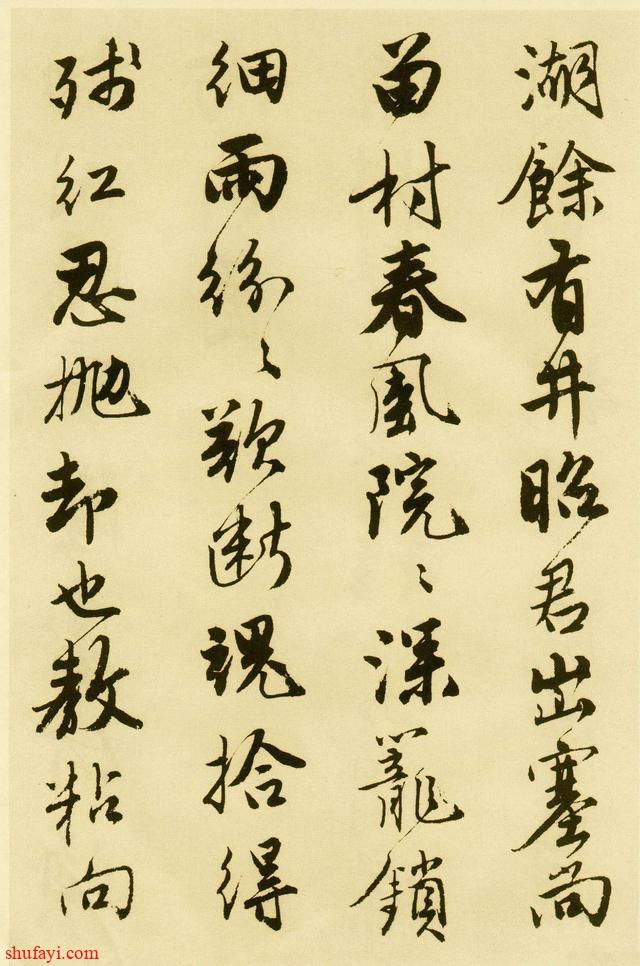 湖餘有井昭君出塞尚
留村春風院〻深籠鎖
細雨紛〻欲斷魂拾得
殘紅忍抛却也教粘向
shufayi.com